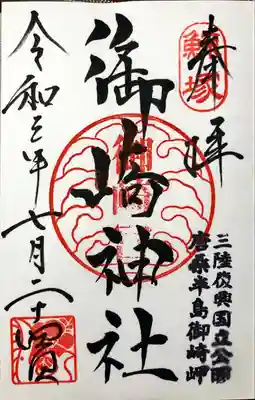 奉拝
鯨塚
三陸復興国立公園
唐桑半島御崎岬
御崎神社
令和三年七月二十四日